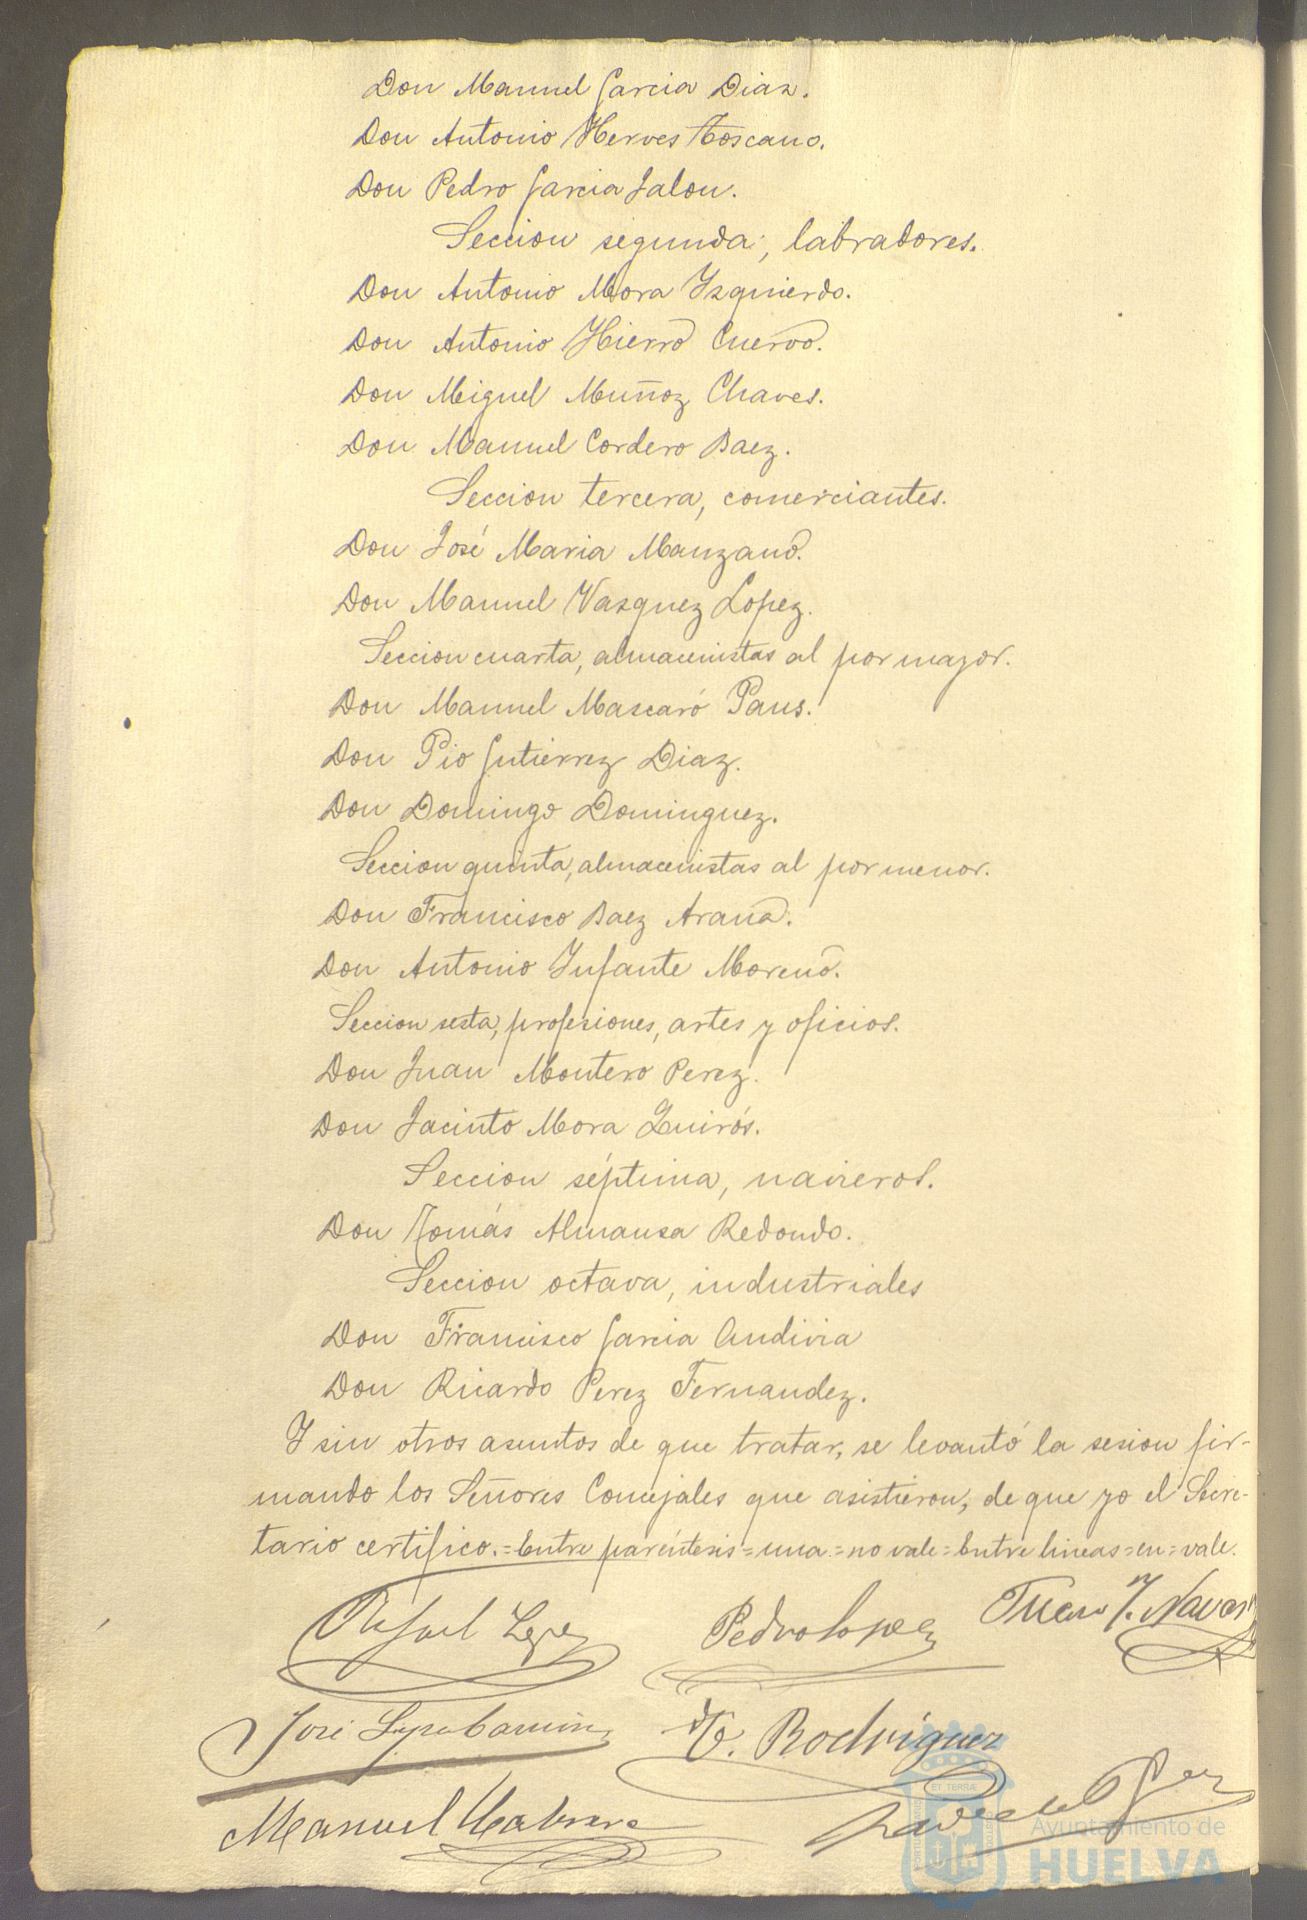 Don Manuel Garcia Diaz.
Don Antonio Herves Toscano.
Don Pedro Garcia Jalon.
Seccion segunda, labradores.
Don Antonio Mora Yzquierdo.
Don Antonio Hierro Cuervo.
Don Miguel Muñoz Chaves.
Don Manuel Cordero Baez.
Seccion tercera, comerciantes.
Don José Maria Manzano.
Don Manuel Vazquez Lopez.
Seccion cuarta, almacenistas al por mayor.
Don Manuel Mascaró Paus.
Don Pio Gutierrez Diaz.
Don Domingo Dominguez.
Seccion quinta, almacenistas al por menor.
Don Francisco Baez Arana.
Don Antonio Ynfante Moreno.
Seccion sesta, profesiones, artes y oficios.
Don Juan Montero Perez.
Don Jacinto Mora Quirós.
Seccion séptima, navieros.
Don Tomás Almansa Redondo.
Seccion octava, industriales
Don Francisco Garcia Andivia
Don Ricardo Perez Fernandez.
Y sin otros asuntos de que tratar, se levantó la sesion fir-
mando los Señores Concejales que asistieron, de que yo el Secre-
tario certifico.=Entre paréntesis=una=no vale=Entre lineas=en=vale.
Rafael Lopez
Pedro Lopez
Juan
José
Rodriguez
Manuel
ET TERRÆ
Ayuntamiento de
HUELVA